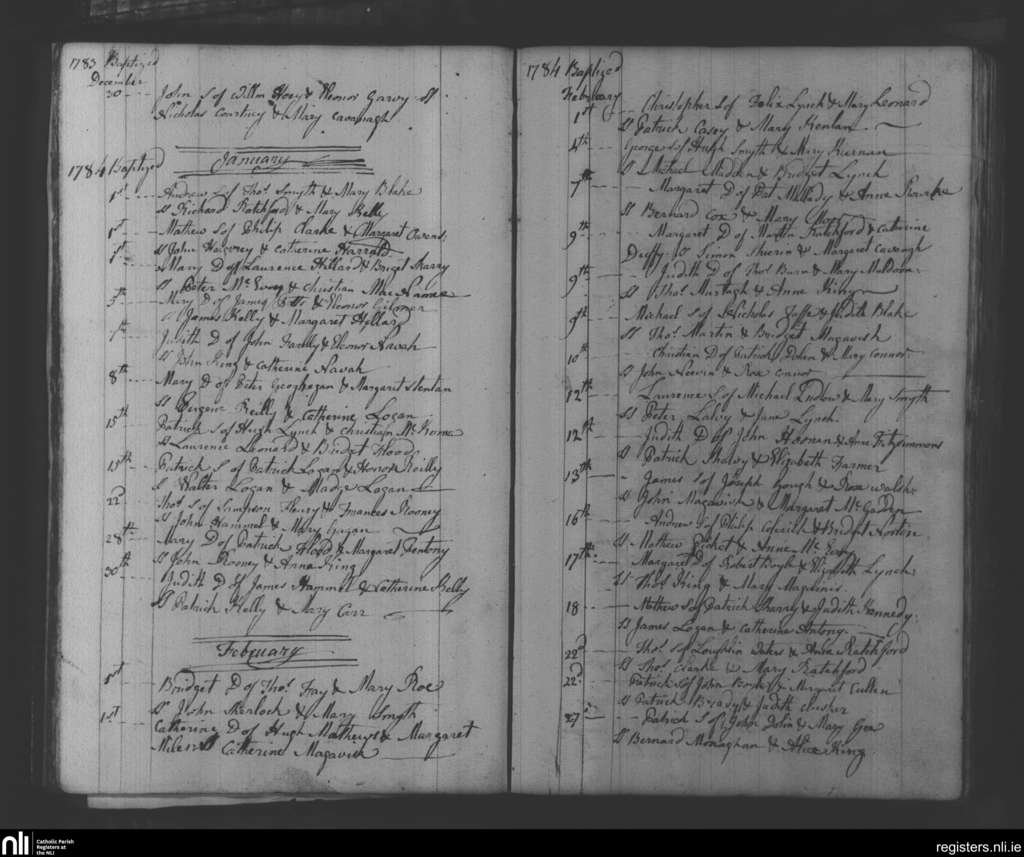 1783 Baptized
December
30 John S of Willm Hoey & Eleonor Garvy Sp
Nicholas Courtney & Mary Cavanagh
January
1784 Baptized
1st Andrew S of Thos Smyth & Mary Blake
Sp Richard Ratchford & Mary Kelly
1st Mathew S of Philip Clarke & Margaret Owens
Sp John & Catherine
Mary D of Laurence Hillard & Briget Harry
Sp Peter Mc & Christian Mac Namee
5th Mary D of James & Eleonor
James Kelly & Margaret Hillard
7th Judith D of John & Eleonor Navah
Sp John King & Catherine Navah
8th Mary D of Peter Geoghegan & Margaret
Sp Eugene Reilly & Catherine Logan
15th Patrick S of Hugh Lynch & Christian Mc
Sp Laurence Leonard & Bridget Flood
15th Patrick S of Patrick Logan & Honor Reilly
S Walter Logan & Madge Logan
22d Thos S of Sampson Fleury & Frances Rooney
S John Hammel & Mary Gagan
28th Mary D of Patrick Flood & Margaret Fentony
Sp John Rooney & Anna King
30th Judith D of James Hammel & Catherine Kelly
Sp Patrick Kelly & Mary Carr
February
1st Bridget D of Thos Fay & Mary Roe
Sp John Sherlock & Mary Smyth
1st Catherine D of Hugh Mathews & Margaret
Catherine Magawick
1784 Baptized
February
1st Christopher S of Felix Lynch & Mary Leonard
Sp Patrick Casey & Mary Kenlan
4th George S of Hugh Smyth & Mary Kiernan
Sp Michael Madden & Bridget Lynch
7th Margaret D of Pat Mullady & Anne Rourke
Sp Bernard Cox & Mary
9th Margaret D of Martin Ratchford & Catherine
Duffy S Simon & Margaret Cavanagh
9th Judith D of Thos Burn & Mary Muldoon
Sp Thos Murtagh & Anne King
9th Michael S of Nicholas Jaffe & Judith Blake
Sp Thos Martin & Bridget Magawish
10th Christian D of Patrick Dolan & Mary Connor
S John & Rose Connor
12th Laurence S of Michael Ludlow & Mary Smyth
Sp Peter Lalvy & Jane Lynch
12th Judith D of John Heenan & Anne Fitzsimmons
S Patrick & Elizabeth Farmer
13th James S of Joseph Gough & Rose Walsh
Sp John Magawish & Margaret Mc
16th Andrew S of Philip & Bridget Norton
Sp Mathew & Anne Mc
17th Margaret D of Robert Boyle & Elizabeth Lynch
Sp Thos King & Mary Maginnis
18 Mathew S of Patrick Harry & Judith Kennedy
Sp James Logan & Catherine Antony
22d Thos S of Loughlin Waters & Anne Ratchford
S Thos Clarke & Mary Ratchford
22d Patrick S of John & Margaret Cullen
S Patrick & Judith Cusker
27 Patrick S of John Dolin & Mary
Sp Bernard Monaghan & Alice King
nli
Catholic Parish
Registers at
the NLI
registers.nli.ie